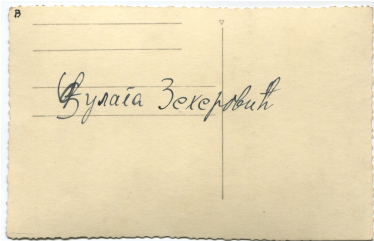 B
Ђулага Зехеровић